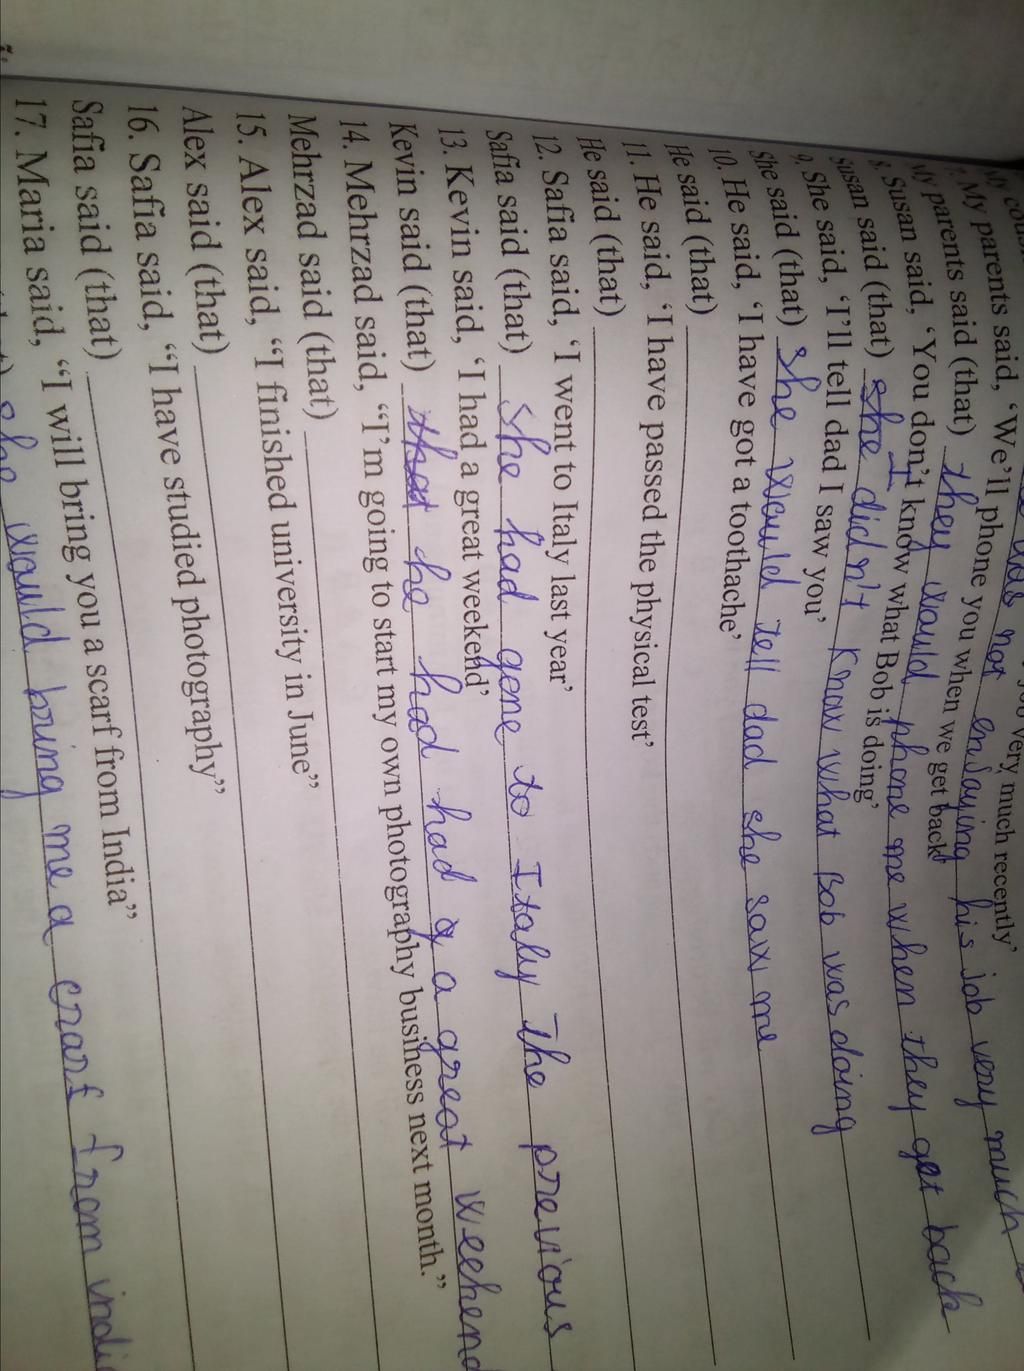 My
was not enjoying his job very much
very much recently'
My parents said, 'We'll phone you when we get back'
My parents said (that) they would phone me when they get back
8. Susan said, 'You don't know what Bob is doing'
Susan said (that) she I didn't know what Bob was doing
9. She said, 'I'll tell dad I saw you'
She said (that) she would tell dad she saw me
10. He said, 'I have got a toothache'
He said (that)
11. He said, 'I have passed the physical test'
He said (that)
12. Safia said, 'I went to Italy last year'
Safia said (that) she had gone to Italy the previous
13. Kevin said, 'I had a great weekend'
Kevin said (that) that he had had a great weekend
14. Mehrzad said, "I'm going to start my own photography business next month."
Mehrzad said (that)
15. Alex said, "I finished university in June"
Alex said (that)
16. Safia said, "I have studied photography"
Safia said (that)
17. Maria said, "I will bring you a scarf from India"
she would bring me a from